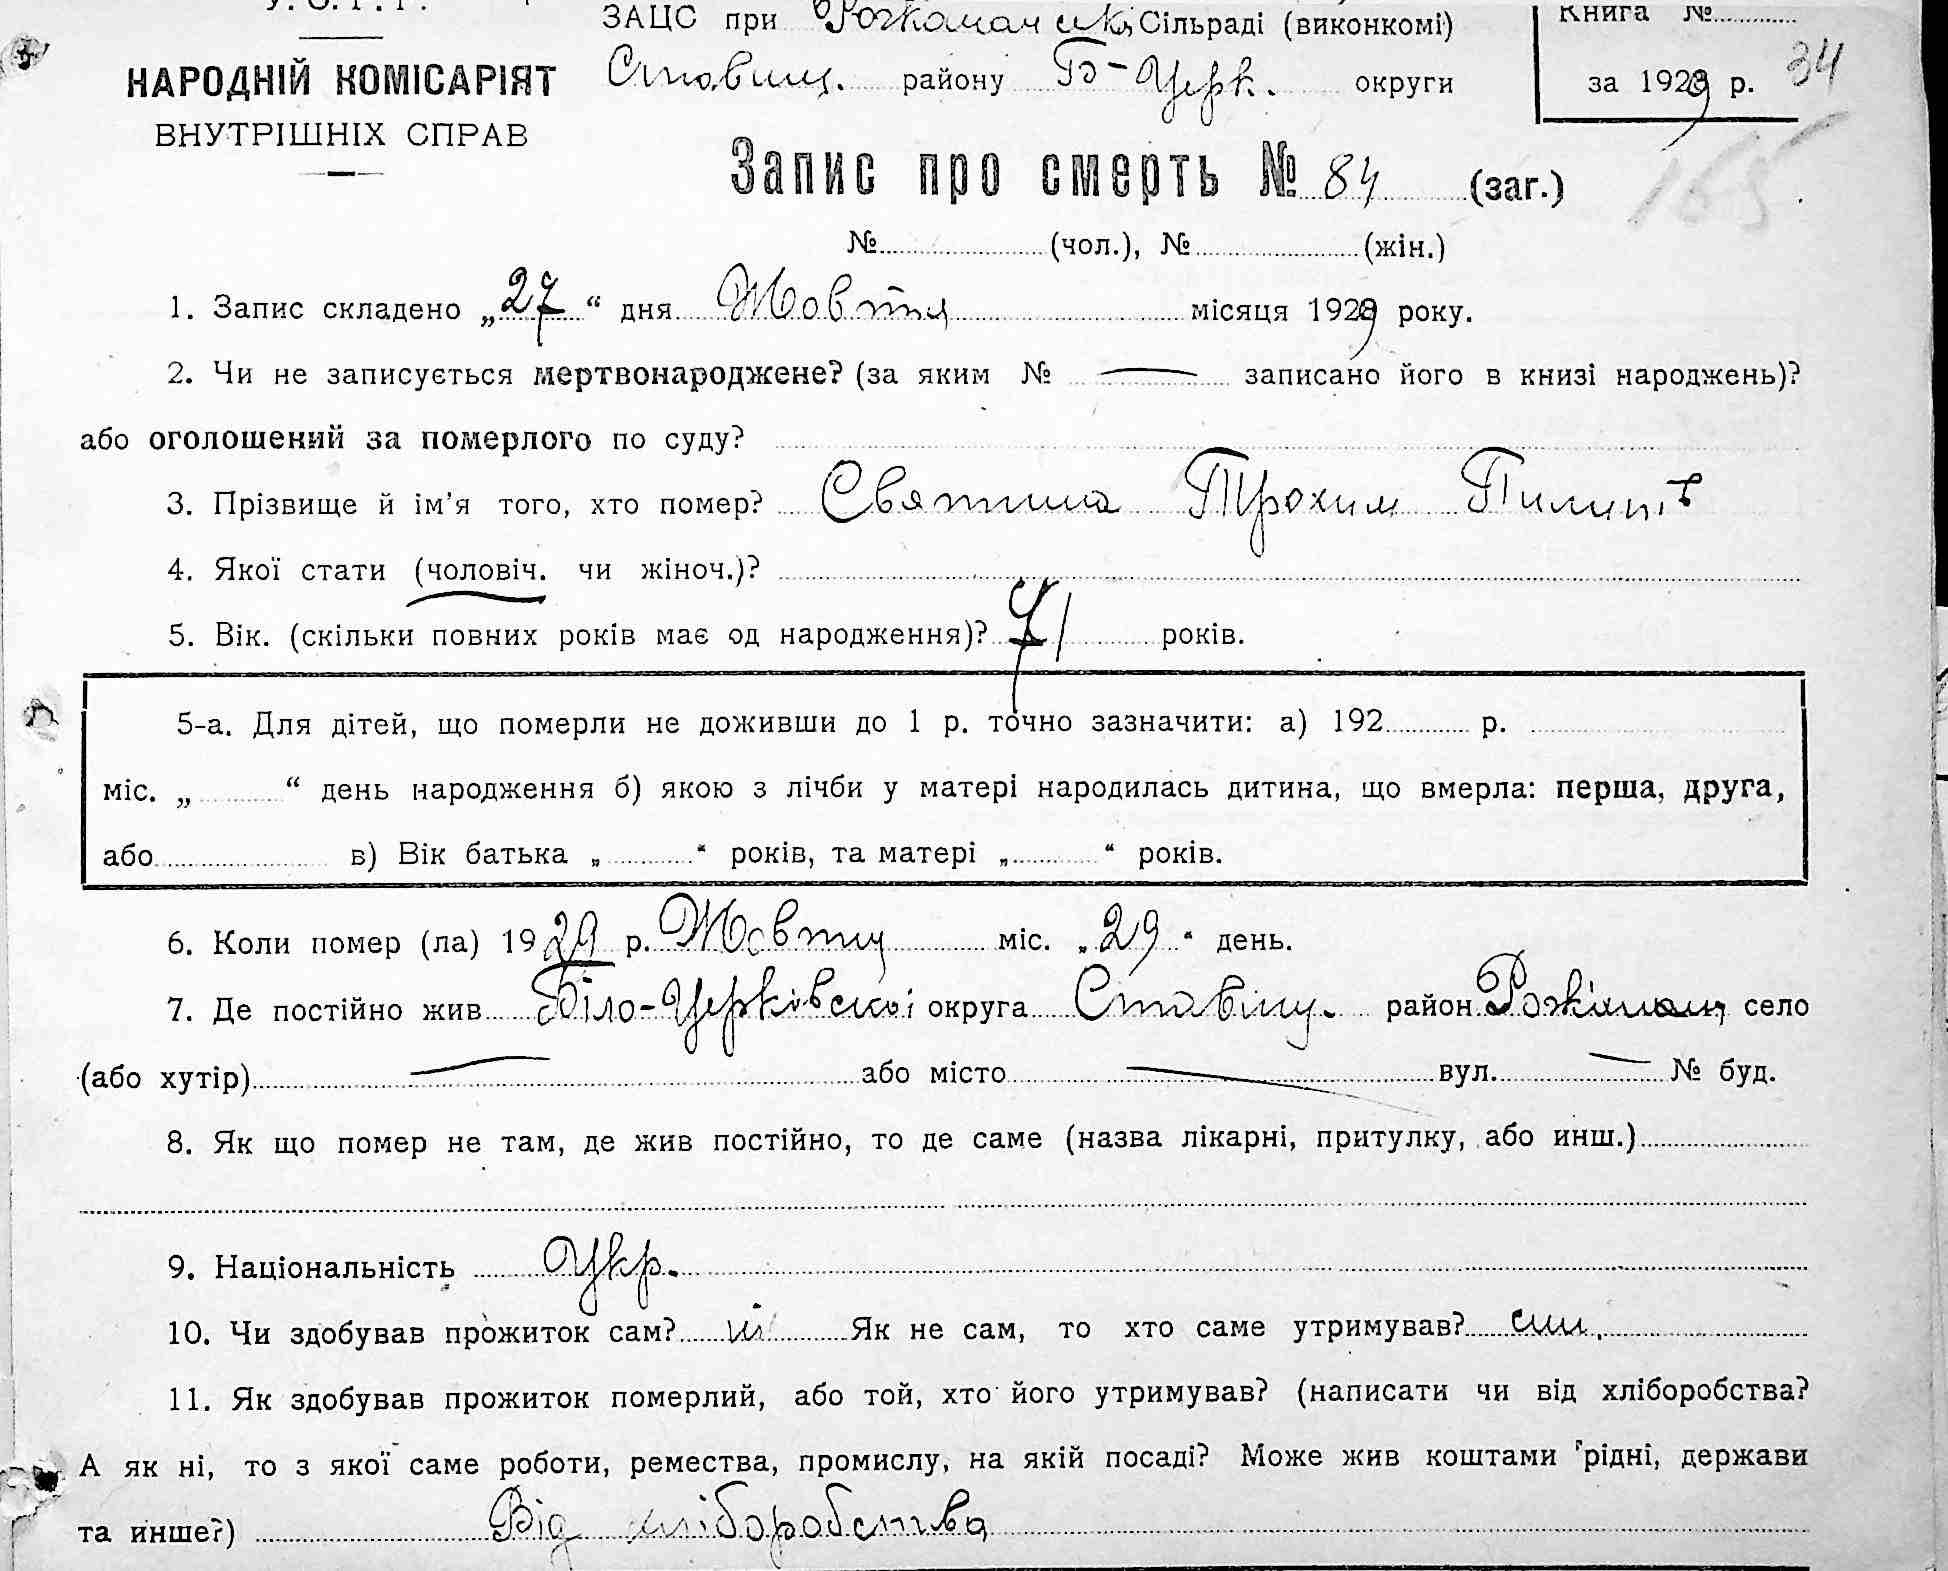 У. С. Р. Р.
ЗАЦС при Сільраді (виконкомі)
Книга №
Ставищ. району Б-Церк. округи
за 1929 р. 34
НАРОДНІЙ КОМІСАРІЯТ
ВНУТРІШНІХ СПРАВ
Запис про смерть № 84 (заг.)
165
№ (чол.), № (жін.)
1. Запис складено „27“ дня Жовтня місяця 1929 року.
2. Чи не записується мертвонароджене? (за яким № — записано його в книзі народжень)?
або оголошений за померлого по суду?
3. Прізвище й ім'я того, хто помер? Святина Трохим Пилипів
4. Якої стати (чоловіч. чи жіноч.)?
5. Вік. (скільки повних років має од народження)? 71 років.
5-а. Для дітей, що померли не доживши до 1 р. точно зазначити: а) 192 р.
міс. „ “ день народження б) якою з лічби у матері народилась дитина, що вмерла: перша, друга,
або в) Вік батька „ “ років, та матері „ “ років.
6. Коли помер (ла) 1929 р. Жовтня міс. „29“ день.
7. Де постійно жив Біло-Церківської округа Ставищ. район село
(або хутір) — або місто — вул. — № буд.
8. Як що помер не там, де жив постійно, то де саме (назва лікарні, притулку, або инш.)
9. Національність Укр.
10. Чи здобував прожиток сам? ні Як не сам, то хто саме утримував? син.
11. Як здобував прожиток померлий, або той, хто його утримував? (написати чи від хліборобства?
А як ні, то з якої саме роботи, ремества, промислу, на якій посаді? Може жив коштами рідні, держави
та инше?) Від хліборобства